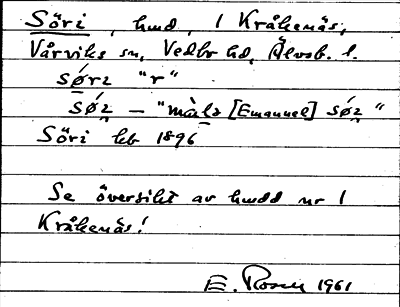 Söri, hmd, 1 Kråkenäs,
Vårviks sn, Vedbo hd, Älvsb. l.
sørɩ "r"
søɀ̣ – "màlɀ [Emanuel] søɀ̣"
Söri lkb 1896
Se översikt av hmdd nr 1
Kråkenäs!
E. Rosen 1961